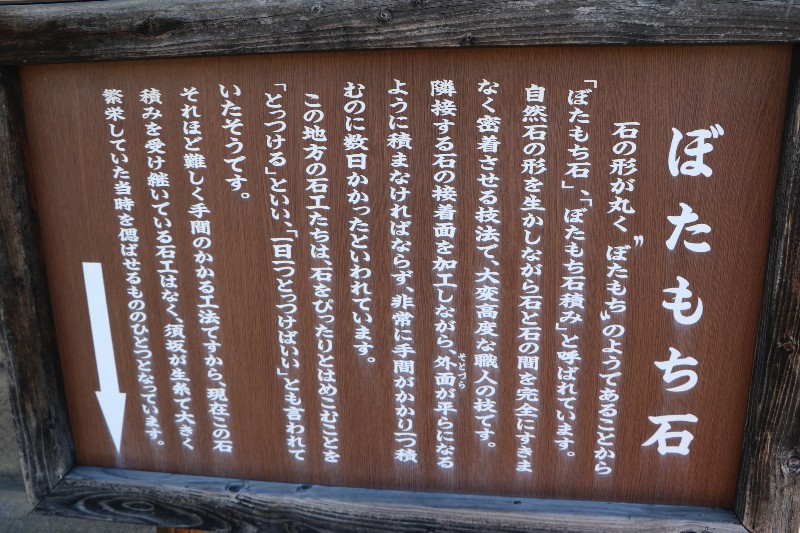 ぼたもち石
石の形が丸く〝ぼたもち〟のようであることから
「ぼたもち石」、「ぼたもち石積み」と呼ばれています。
自然石の形を生かしながら石と石の間を完全にすきま
なく密着させる技法で、大変高度な職人の技です。
隣接する石の接着面を加工しながら、外面が平らになる
そとづら
ように積まなければならず、非常に手間がかかり一つ積
むのに数日かかったといわれています。
この地方の石工たちは、石をぴったりとはめこむことを
「どっつける」といい、「一日一つどっつけばいい」とも言われて
いたそうです。
それほど難しく手間のかかる工法ですから、現在この石
積みを受け継いでいる石工はなく、須坂が生糸で大きく
繁栄していた当時を偲ばせるもののひとつとなっています。